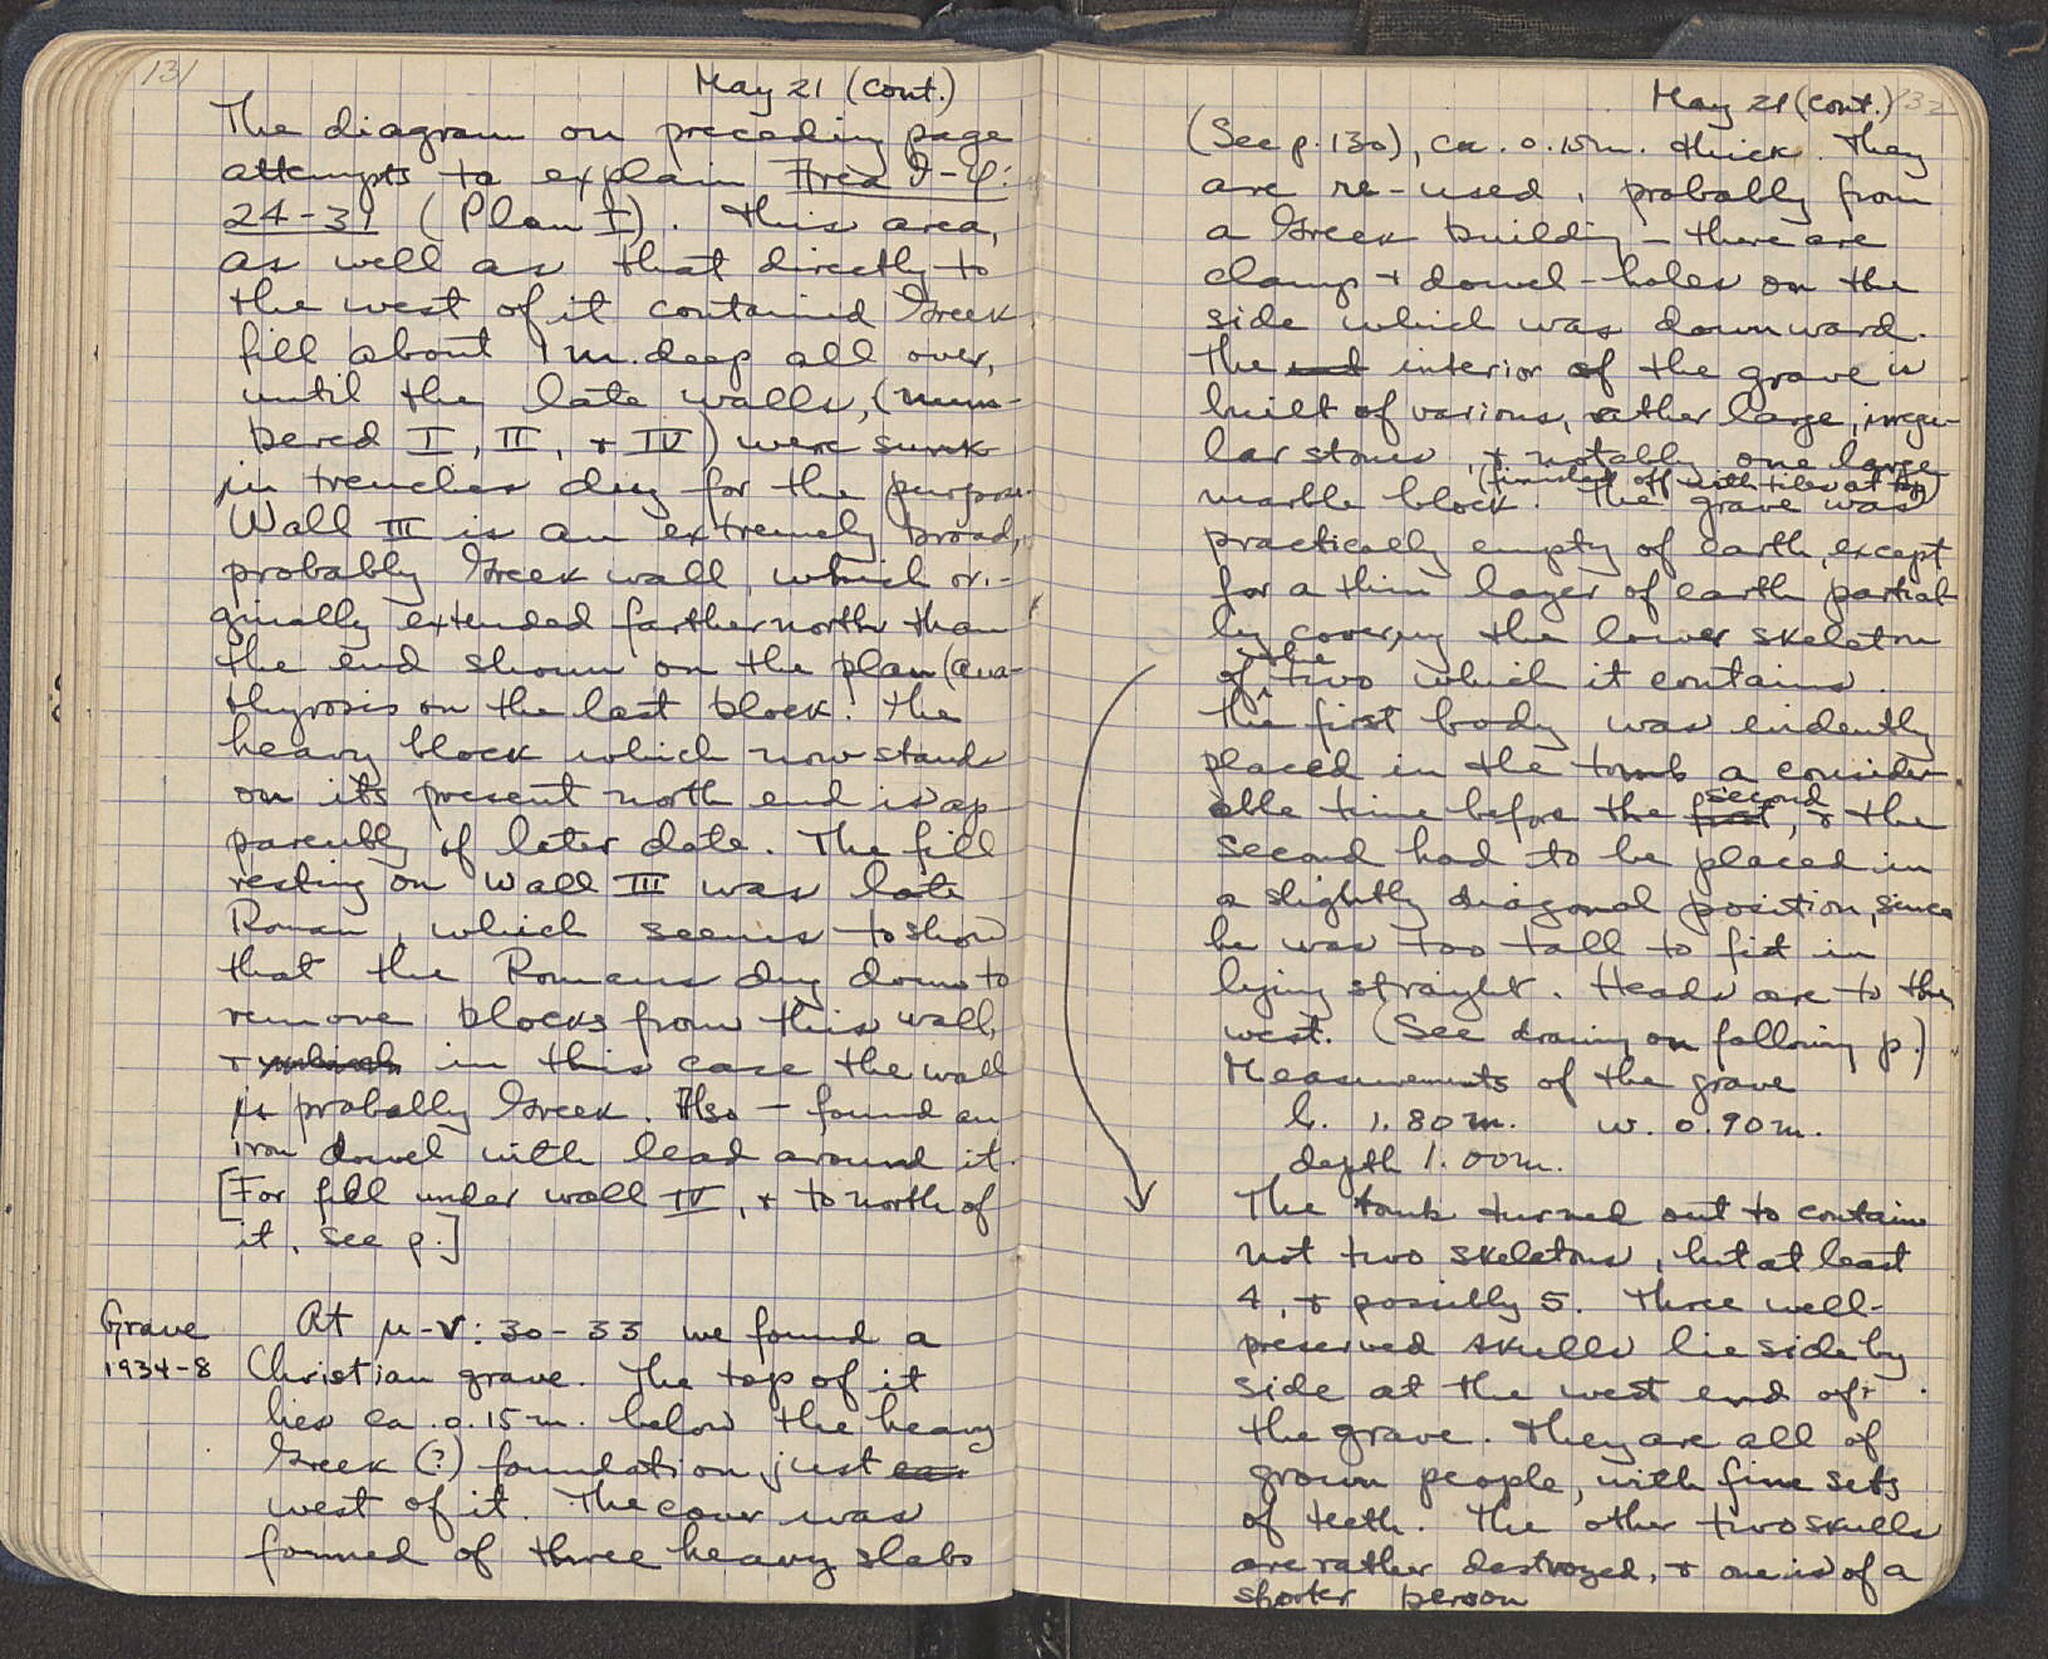 131
May 21 (cont.)
The diagram on preceding page
attempts to explain Area
24-31 (Plan I). This area,
as well as that directly to
the west of it contained Greek
fill about 1 m. deep all over,
until the late walls, (num-
bered I, II, + IV) were sunk
in trenches dug for the purpose.
Wall III is an extremely broad,
probably Greek wall, which ori-
ginally extended farther north than
the end shown on the plan (ana-
thyrosis on the last block. The
heavy block which now stands
on its present north end is ap
parently of later date. The fill
resting on Wall III was late
Roman, which seems to show
that the Romans dug down to
remove blocks from this wall,
+ which in this case the wall
is probably Greek. Also - found an
iron dowel with lead around it.
[For fill under wall IV, + to north of
it, see p.]
Grave
1934-8
At μ-ν: 30-33 we found a
Christian grave. The top of it
lies ca. 0.15 m. below the heavy
Greek (?) foundation, just eas
west of it. The cover was
formed of three heavy slabs
132
May 21 (cont.)
(See p. 130), ca. 0.15m. thick. They
are re-used, probably from
a Greek building - there are
clamp + dowel-holes on the
side which was downward.
The interior of the grave is
built of various, rather large, irregu-
lar stones, + notably one large
(finished off with tiles at top)
marble block. The grave was
practically empty of earth, except
for a thin layer of earth partial
ly covering the lower skeleton
of the two which it contains.
The first body was evidently
placed in the tomb a consider-
able time before the first second, + the
second had to be placed in
a slightly diagonal position, since
he was too tall to fit in
lying straight. Heads are to the
west. (See drawing on following p.)
Measurements of the grave
l. 1.80 m. w. 0.90 m.
depth 1.00m.
The tomb turned out to contain
not two skeletons, but at least
4, + possibly 5. Three well-
preserved skulls lie side by
side at the west end of
the grave. They are all of
grown people, with fine sets
of teeth. The other two skulls
are rather destroyed, + one is of a
shorter person